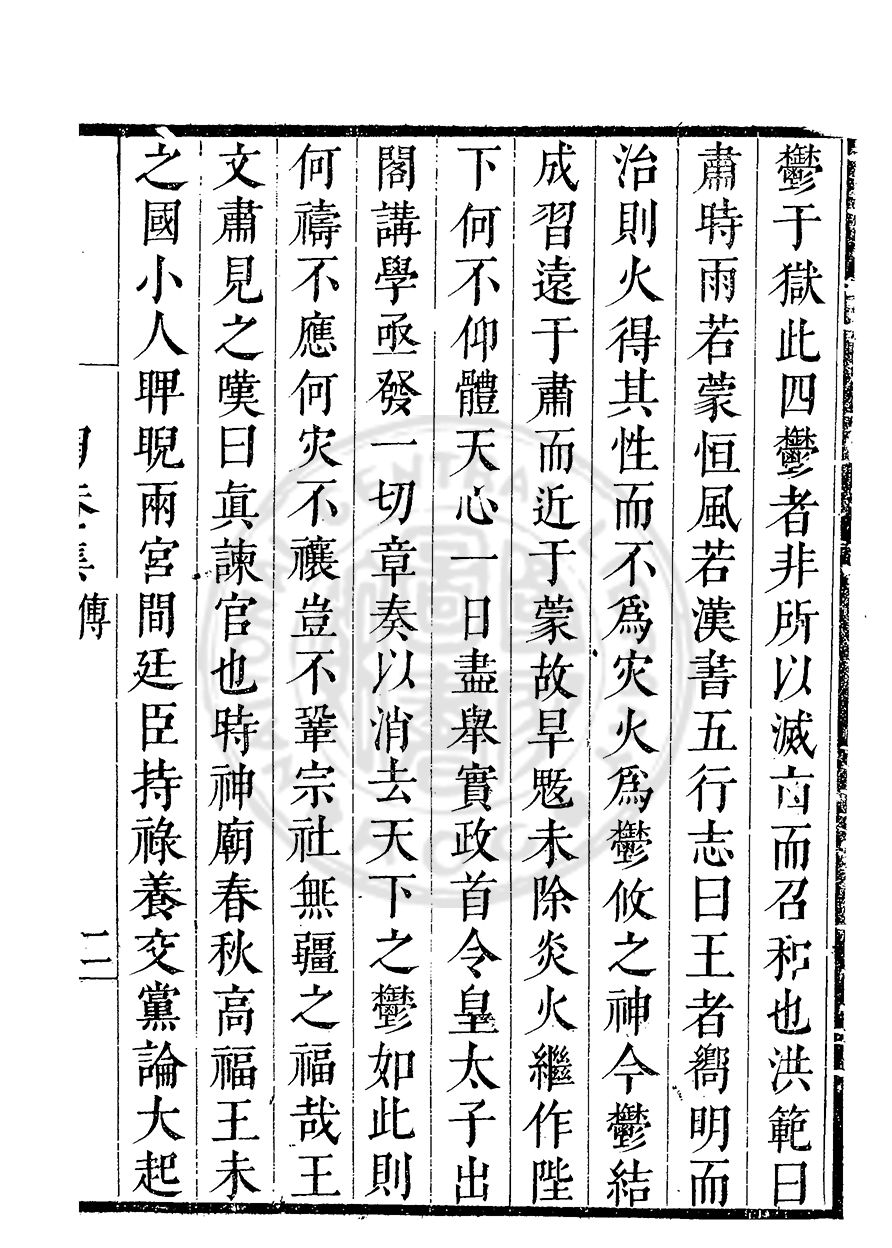 鬱于獄此四鬱者非所以滅㐫而召和也洪範曰
肅時雨若蒙恒風若漢書五行志曰王者嚮明而
治則火得其性而不爲灾火爲鬱攸之神今鬱結
成習遠于肅而近于蒙故旱魃未除炎火繼作陛
下何不仰體天心一日盡舉實政首令皇太子出
閣講學亟發一切章奏以消去天下之鬱如此則
何禱不應何灾不禳豈不鞏宗社無疆之福哉王
文肅見之嘆曰真諫官也時神廟春秋高福王未
之國小人睥睨兩宮間廷臣持祿養交黨論大起
傳
二